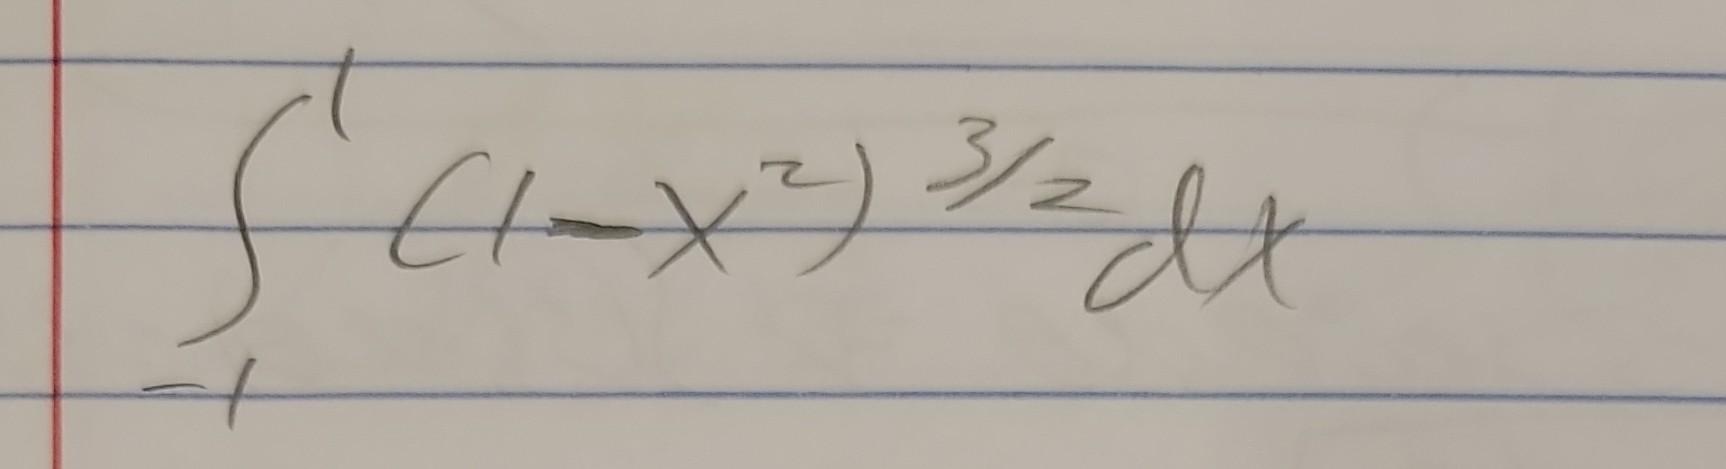 ∫_{-1}^{1} (1-x²)^{3/2} dx